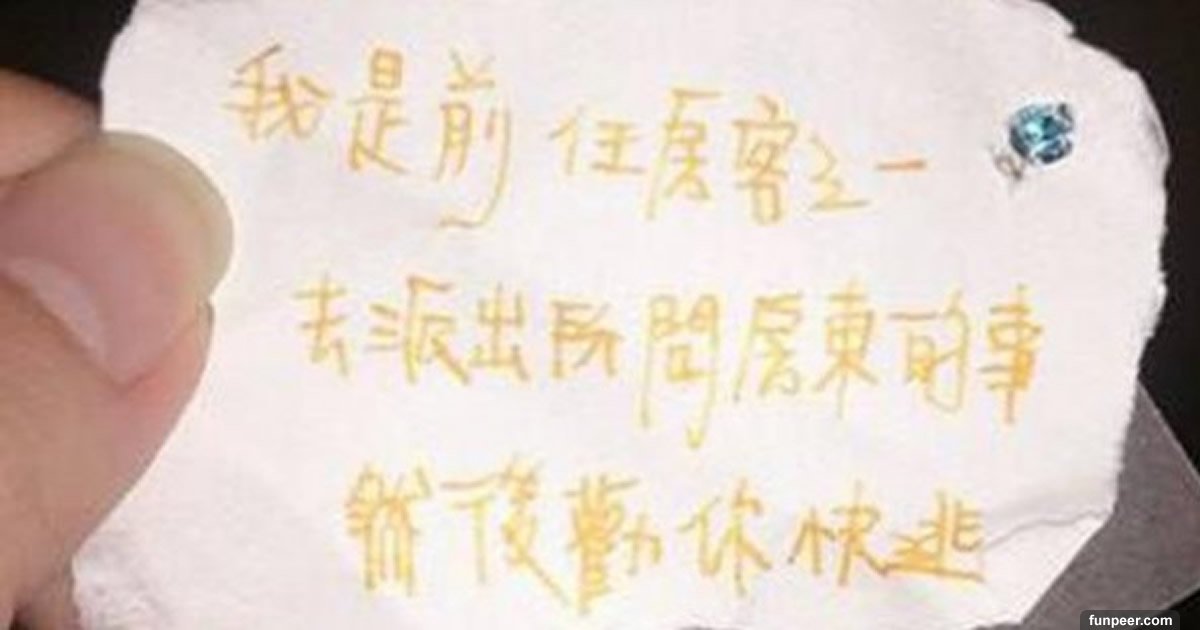 我是前任房客之一
去派出所問房東的事
然後勸你快逃
funpeer.com